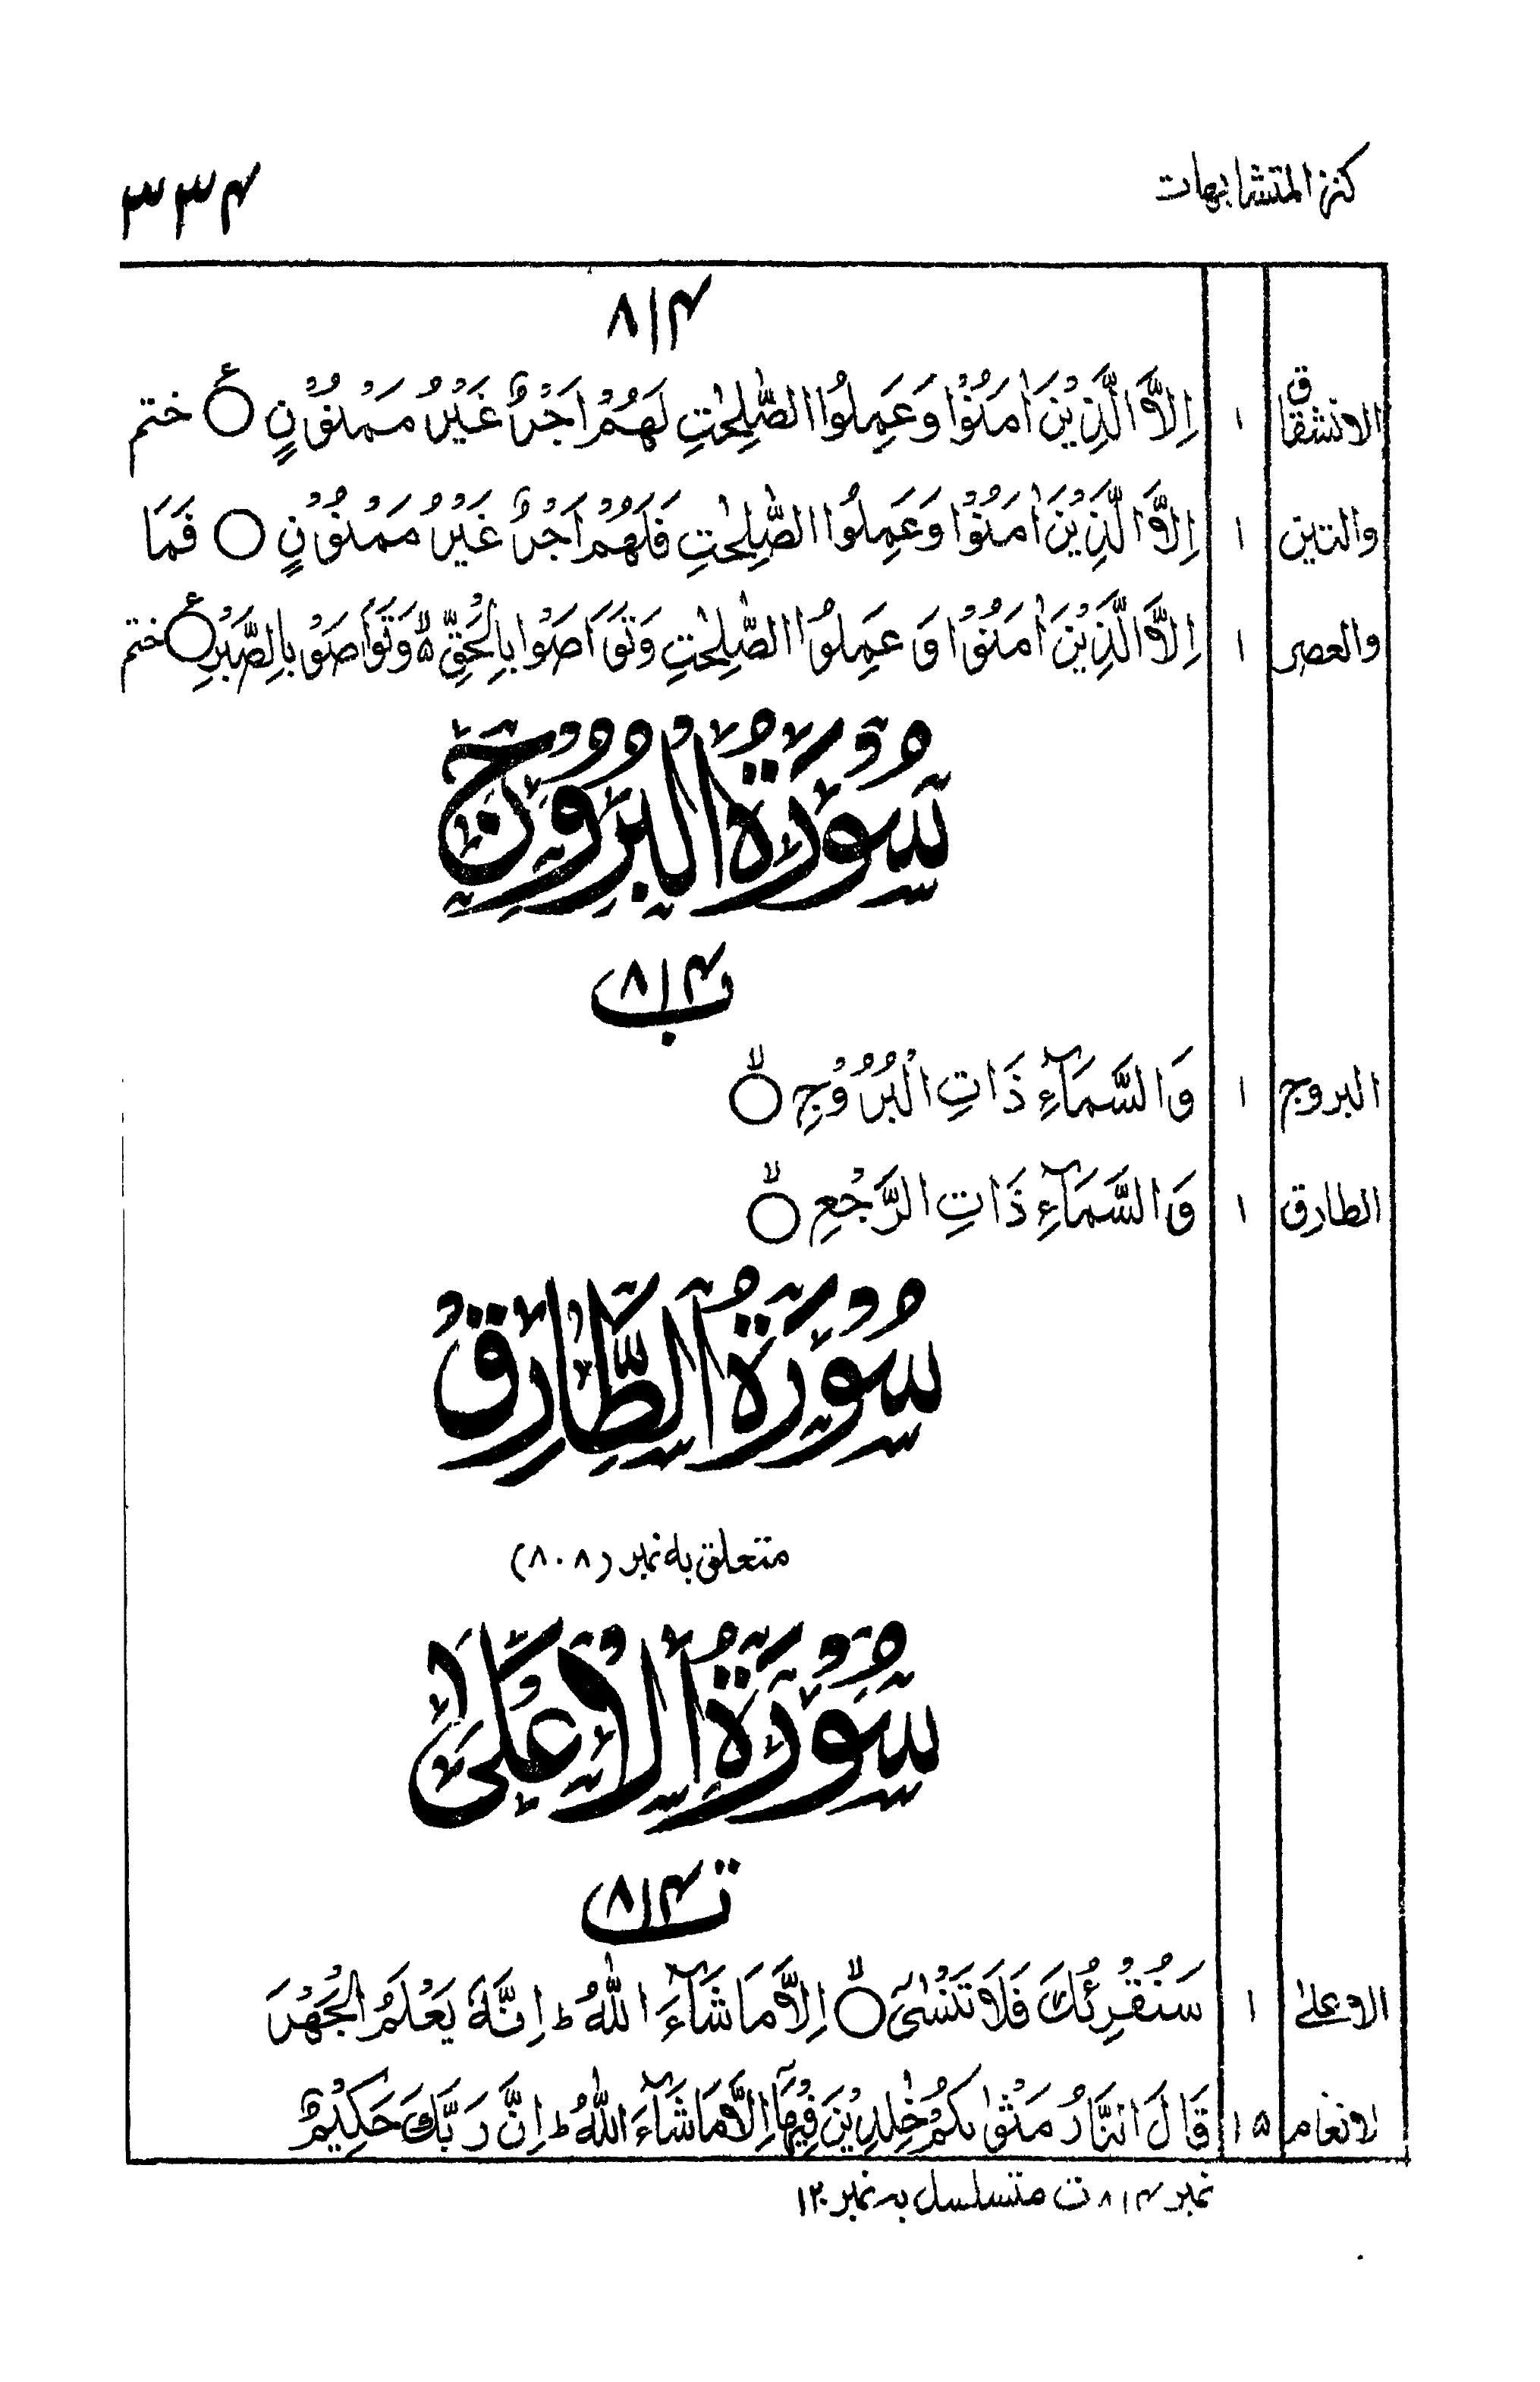 كنز المتشابهات ۳۳۴
۸۱۴
الانشقاق ۱ اِلَّا الَّذِيْنَ اٰمَنُوْا وَعَمِلُوا الصّٰلِحٰتِ لَهُمْ اَجْرٌ غَيْرُ مَمْنُوْنٍ ○ ع ختم
والتین ۱ اِلَّا الَّذِيْنَ اٰمَنُوْا وَعَمِلُوا الصّٰلِحٰتِ فَلَهُمْ اَجْرٌ غَيْرُ مَمْنُوْنٍ ○ فَمَا
والعصر ۱ اِلَّا الَّذِيْنَ اٰمَنُوْا وَ عَمِلُوا الصّٰلِحٰتِ وَتَوَاصَوْا بِالْحَقِّ ۵ۙ وَتَوَاصَوْ بِالصَّبْرِ ○ ع ختم
سُوْرَةُ الْبُرُوْجِ
۸۱۴ ب
البروج ۱ وَالسَّمَآءِ ذَاتِ الْبُرُوْجِ ○ۙ
الطارق ۱ وَالسَّمَآءِ ذَاتِ الرَّجْعِ ○ۙ
سُوْرَةُ الطَّارِقِ
متعلق به نمبر (۸۰۸)
سُوْرَةُ الْاَعْلٰى
۸۱۴ ت
الاعلیٰ ۱ سَنُقْرِئُكَ فَلَا تَنْسٰۤى ○ۙ اِلَّا مَا شَآءَ اللّٰهُ ؕ اِنَّهٗ يَعْلَمُ الْجَهْرَ
الانعام ۱۵ قَالَ النَّارُ مَثْوٰىكُمْ خٰلِدِيْنَ فِيْهَاۤ اِلَّا مَا شَآءَ اللّٰهُ ؕ اِنَّ رَبَّكَ حَكِيْمٌ
نمبر ۸۱۴ ت متسلسل به نمبر ۱۲۰